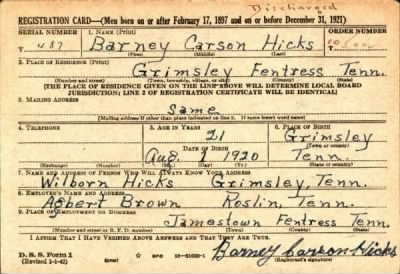 Discharged
REGISTRATION CARD—(Men born on or after February 17, 1897 and on or before December 31, 1921)
SERIAL NUMBER 1. NAME (Print) ORDER NUMBER
Barney Carson Hicks
(First) (Middle) (Last)
2. PLACE OF RESIDENCE (Print)
Grimsley Fentress Tenn.
(Number and street) (Town, township, village, or city) (County) (State)
[THE PLACE OF RESIDENCE GIVEN ON THE LINE ABOVE WILL DETERMINE LOCAL BOARD
JURISDICTION; LINE 2 OF REGISTRATION CERTIFICATE WILL BE IDENTICAL]
3. MAILING ADDRESS
Same
[Mailing address if other than place indicated on line 2. If same insert word same]
4. TELEPHONE 5. AGE IN YEARS 6. PLACE OF BIRTH
21 Grimsley
DATE OF BIRTH (Town or county)
Aug. 1 1920 Tenn.
(Exchange) (Number) (Mo.) (Day) (Yr.) (State or country)
7. NAME AND ADDRESS OF PERSON WHO WILL ALWAYS KNOW YOUR ADDRESS
Wilborn Hicks Grimsley, Tenn.
8. EMPLOYER'S NAME AND ADDRESS
Brown Roslin, Tenn.
9. PLACE OF EMPLOYMENT OR BUSINESS
Jamestown Fentress Tenn.
(Number and street or R. F. D. number) (Town) (County) (State)
I AFFIRM THAT I HAVE VERIFIED ABOVE ANSWERS AND THAT THEY ARE TRUE.
D. S. S. Form 1
(Revised 1-1-42) GPO 16—21630-1 Barney Carson Hicks
(Registrant's signature)